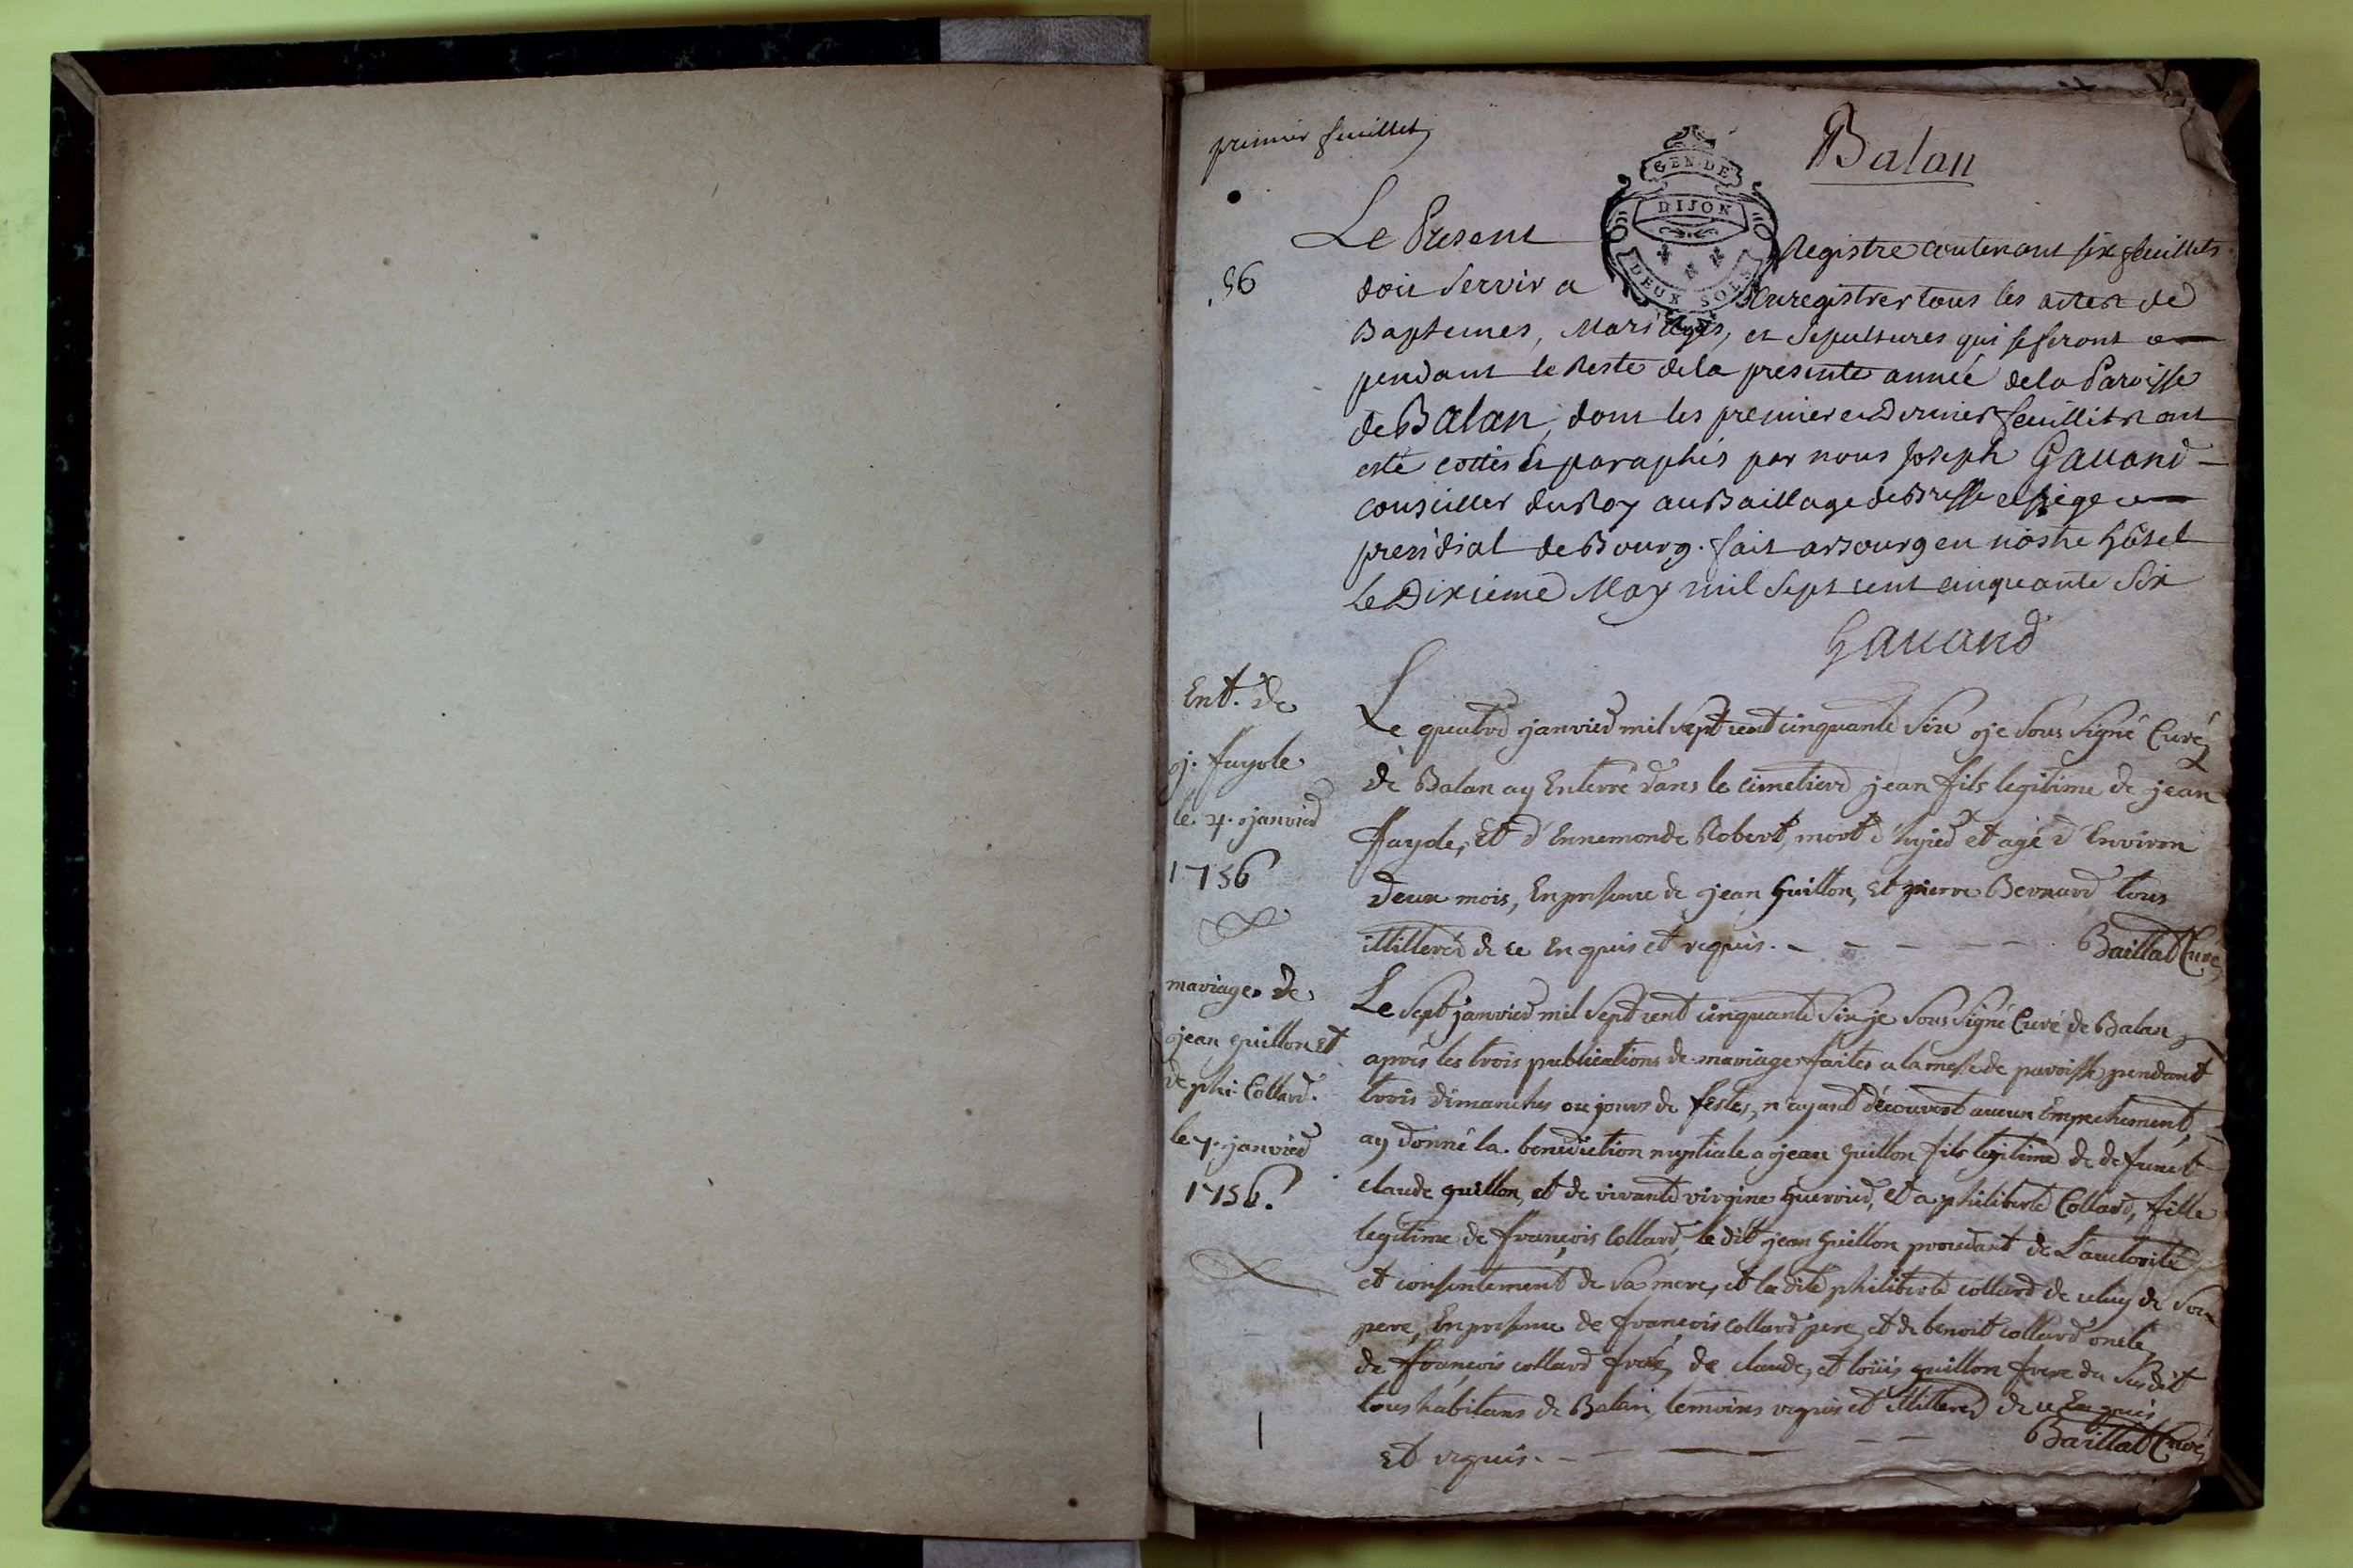 primier feuillet
Balan
GEN. DE
DIJON
DEUX SOLS
56
Le Present Registre contenant six feuillets
doit servir a Enregistrer tous les actes de
Baptemes, Mariages, et Sepultures qui se feront
pendant le Reste dela presente année dela Paroisse
de Balan, dont les premier et Dernier feuillets ont
esté cottés et paraphés par nous Joseph Gauand
conseiller du Roy au Baillage de Bresse et siege
presidial de Bourg. fait a Bourg en nostre hôtel
le Dixieme May mil sept cent cinquante six
Gauand
Ent. de
j. fayole
le 4. janvier
1756
Le quatre janvier mil sept cent cinquante six je sous signé Curé
de Balan ay Enterré dans le cimetiere jean fils legitime de jean
fayole, et d'Ennemonde Robert, mort d'hyier et agé d'Environ
deux mois, En presence de jean Guillon, et pierre Bernard tous
illitterés de ce Enquis et requis.
Baillat Curé
mariage de
jean guillon et
de phi. Collard.
le 7. janvier
1756.
Le sept janvier mil sept cent cinquante six je sous signé Curé de Balan
aprés les trois publications de mariage faites a la messe de paroisse pendant
trois dimanches ou jours de festes, n'ayant découvert aucun Empechement,
ay donné la benediction nuptiale a jean guillon fils legitime de defunct
claude guillon, et de vivante virgine Guerrier, et a philiberte Collard, fille
legitime de françois Collard, le dit jean Guillon procedant de L'authorité
et consentement de sa mere, et la dite philiberte collard de celuy de son
pere, En presence de françois collard pere, et de benoit collard oncle,
de françois collard frere, de claude, et loüis guillon frere du susdit
tous habitans de Balan, temoins requis et illitterés de ce Enquis
Et requis.
Baillat Curé
1